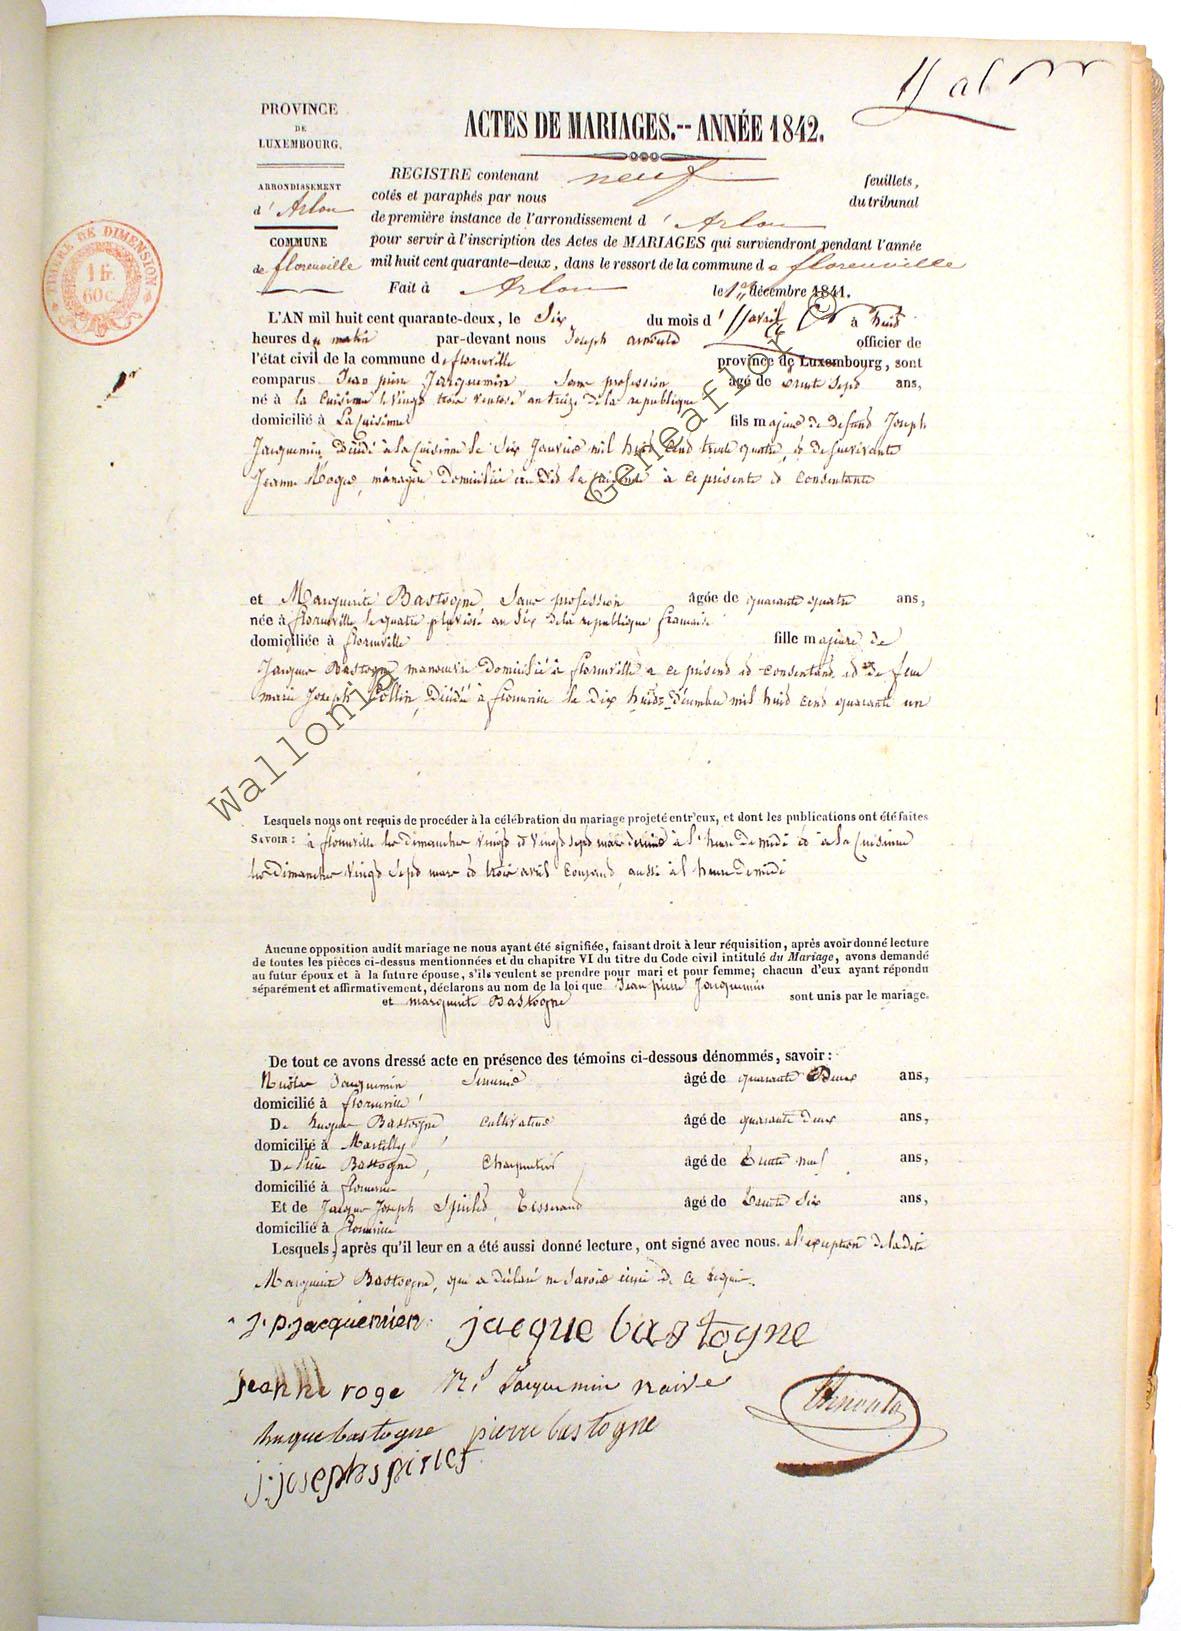 PROVINCE
DE
LUXEMBOURG.
ARRONDISSEMENT
d' Arlon
COMMUNE
de florenville
TIMBRE DE DIMENSION
1 f.
60 c.
ACTES DE MARIAGES.-- ANNÉE 1842.
REGISTRE contenant neuf feuillets,
cotés et paraphés par nous du tribunal
de première instance de l'arrondissement d' Arlon
pour servir à l'inscription des Actes de MARIAGES qui surviendront pendant l'année
mil huit cent quarante-deux, dans le ressort de la commune de florenville
Fait à Arlon le 1er décembre 1841.
1r
L'AN mil huit cent quarante-deux, le Six du mois d'avril à huit
heures du matin par-devant nous Joseph arnould officier de
l'état civil de la commune de florenville province de Luxembourg, sont
comparus Jean pierre Jacquemin Sans profession âgé de trente sept ans,
né à la Cuisinne le vingt trois ventose an treize de la republique
domicilié à La Cuisinne fils majeur de defunt Joseph
Jacquemin Décédé à la Cuisinne le Six Janvier mil huit cent trente quatre, et de Survivante
Jeanne Roger, ménagère Domiciliée au dit la cuisinne à ce présente et consentante
et Marguerite Bastogne, Sans profession âgée de quarante quatre ans,
née à florenville le quatre pluviose an Six de la republique francaise
domiciliée à florenville fille majeure de
Jacques Bastogne manouvrier Domicilié à florenville a ce présent et consentant et de feue
marie Joseph Collin, Décédé à florenville le dix huit Décembre mil huit cent quarante un
Lesquels nous ont requis de procéder à la célébration du mariage projeté entr'eux, et dont les publications ont été faites
SAVOIR : à florenville les dimanches vingt et vingt sept mars dernier à l'heure De midi et à la Cuisinne
les Dimanches vingt sept mars et trois avril Courant, aussi à l'heure De midi
Aucune opposition audit mariage ne nous ayant été signifiée, faisant droit à leur réquisition, après avoir donné lecture
de toutes les pièces ci-dessus mentionnées et du chapitre VI du titre du Code civil intitulé du Mariage, avons demandé
au futur époux et à la future épouse, s'ils veulent se prendre pour mari et pour femme; chacun d'eux ayant répondu
séparément et affirmativement, déclarons au nom de la loi que Jean pierre Jacquemin
et marguerite Bastogne sont unis par le mariage.
De tout ce avons dressé acte en présence des témoins ci-dessous dénommés, savoir :
Nicolas Jacquemin âgé de quarante Deux ans,
domicilié à florenville
De hugue Bastogne cultivateur âgé de quarante deux ans,
domicilié à Martilly
De pierre Bastogne, Charpentier âgé de trente neuf ans,
domicilié à florenville
Et de Jacques Joseph Spirlet, Tisserand âgé de trente Six ans,
domicilié à florenville
Lesquels, après qu'il leur en a été aussi donné lecture, ont signé avec nous. a l'exception de ladite
Marguerite Bastogne, qui a déclaré ne Savoir écrire de ce requis.
j. p. jacquemien jacque bastogne
jeanne roge Ns Jacquemin
hugue bastogne pierre bastogne
j. joseph spirlet Arnould
Wallonia Geneaflor ©